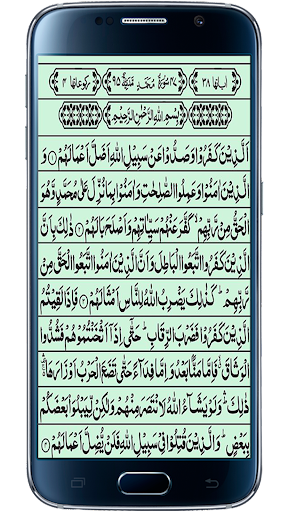 اٰیاتها ٣٨ ٤٧ سُوْرَةُ مُحَمَّدٍ مَّدَنِيَّةٌ ٩٥ رکوعاتها ٤
بِسْمِ اللّٰهِ الرَّحْمٰنِ الرَّحِيْمِ
اَلَّذِيْنَ كَفَرُوْا وَصَدُّوْا عَنْ سَبِيْلِ اللّٰهِ اَضَلَّ اَعْمَالَهُمْ ۝١ وَ
الَّذِيْنَ اٰمَنُوْا وَعَمِلُوا الصّٰلِحٰتِ وَاٰمَنُوْا بِمَا نُزِّلَ عَلٰى مُحَمَّدٍ وَّهُوَ
الْحَقُّ مِنْ رَّبِّهِمْ ۙ كَفَّرَ عَنْهُمْ سَيِّاٰتِهِمْ وَاَصْلَحَ بَالَهُمْ ۝٢ ذٰلِكَ بِاَنَّ
الَّذِيْنَ كَفَرُوا اتَّبَعُوا الْبَاطِلَ وَاَنَّ الَّذِيْنَ اٰمَنُوا اتَّبَعُوا الْحَقَّ مِنْ
رَّبِّهِمْ ؕ كَذٰلِكَ يَضْرِبُ اللّٰهُ لِلنَّاسِ اَمْثَالَهُمْ ۝٣ فَاِذَا لَقِيْتُمُ
الَّذِيْنَ كَفَرُوْا فَضَرْبَ الرِّقَابِ ؕ حَتّٰۤى اِذَاۤ اَثْخَنْتُمُوْهُمْ فَشُدُّوا
الْوَثَاقَ ۙ فَاِمَّا مَنًّۢا بَعْدُ وَاِمَّا فِدَآءً حَتّٰى تَضَعَ الْحَرْبُ اَوْزَارَهَا ۛ۫
ذٰلِكَ ۛؕ وَلَوْ يَشَآءُ اللّٰهُ لَانْتَصَرَ مِنْهُمْ وَلٰكِنْ لِّيَبْلُوَا۟ بَعْضَكُمْ
بِبَعْضٍ ؕ وَالَّذِيْنَ قُتِلُوْا فِيْ سَبِيْلِ اللّٰهِ فَلَنْ يُّضِلَّ اَعْمَالَهُمْ ۝٤